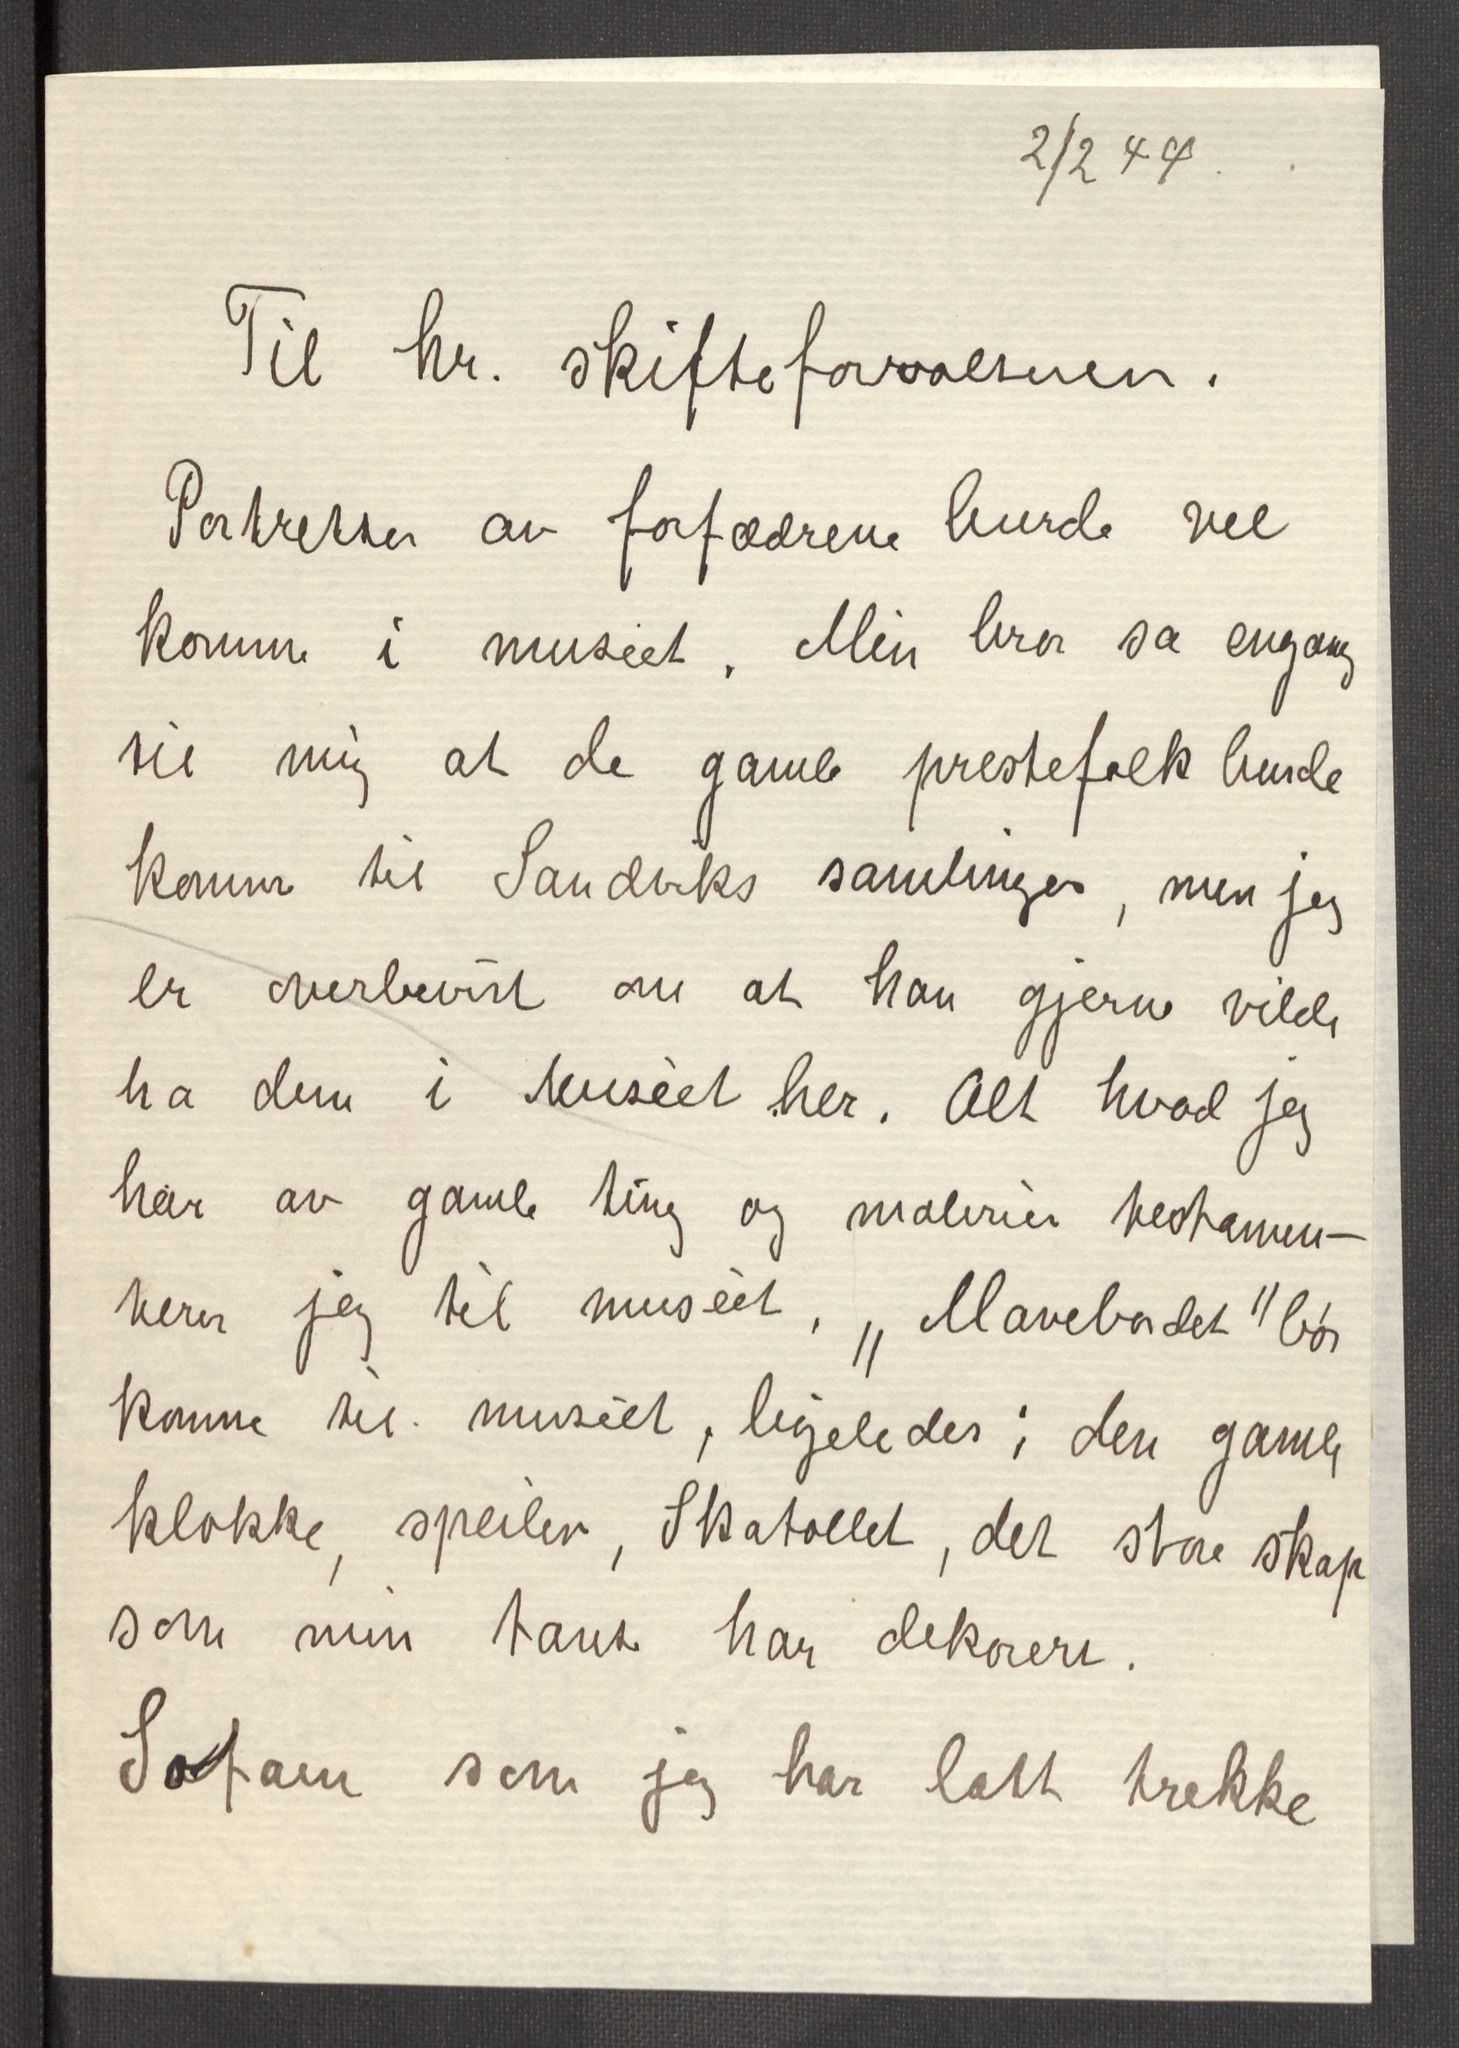 2/2 44.
Til hr. skifteforvalteren.
Portretter av forfædrene burde vel
komme i muséet. Min bror sa engang
til mig at de gamle prestefolk burde
komme til Sandviks samlinger, men jeg
er overbevist om at han gjerne vilde
ha dem i Muséet her. Alt hvad jeg
har av gamle ting og malerier testamen-
terer jeg til muséet. „Mavebordet" bør
komme til muséet, ligeledes i den gamle
klokke, speiler, Skatollet, det store skap
som min tante har dekorert.
Sofaen som jeg har latt trekke